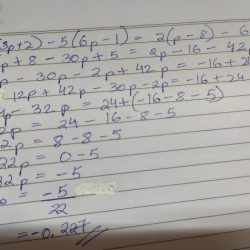 p+2) - 5(6p-1) = 2(p-8) - 6
p + 8 - 30p + 5 = 2p - 16 - 42p
p - 30p - 2p + 42p = -16 + 24
12p + 42p - 30p - 2p = -16 + 24
p - 32p = 24 + (-16 - 8 - 5)
2p = 24 - 16 - 8 - 5
2p = 8 - 8 - 5
22p = 0 - 5
22p = -5
= -5
22
= -0.227